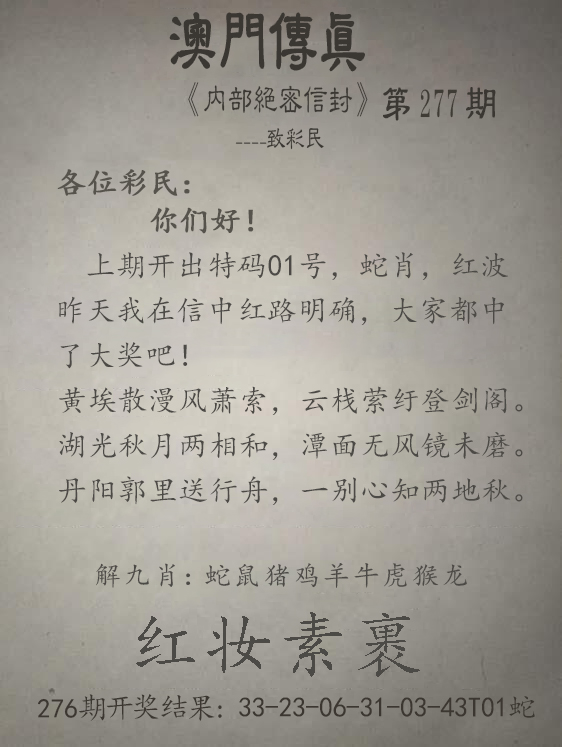 澳門傳眞
《内部絕密信封》第277期
----致彩民
各位彩民：
你们好！
上期开出特码01号，蛇肖，红波
昨天我在信中红路明确，大家都中
了大奖吧！
黄埃散漫风萧索，云栈萦纡登剑阁。
湖光秋月两相和，潭面无风镜未磨。
丹阳郭里送行舟，一别心知两地秋。
解九肖：蛇鼠猪鸡羊牛虎猴龙
红妆素裹
276期开奖结果：33-23-06-31-03-43T01蛇